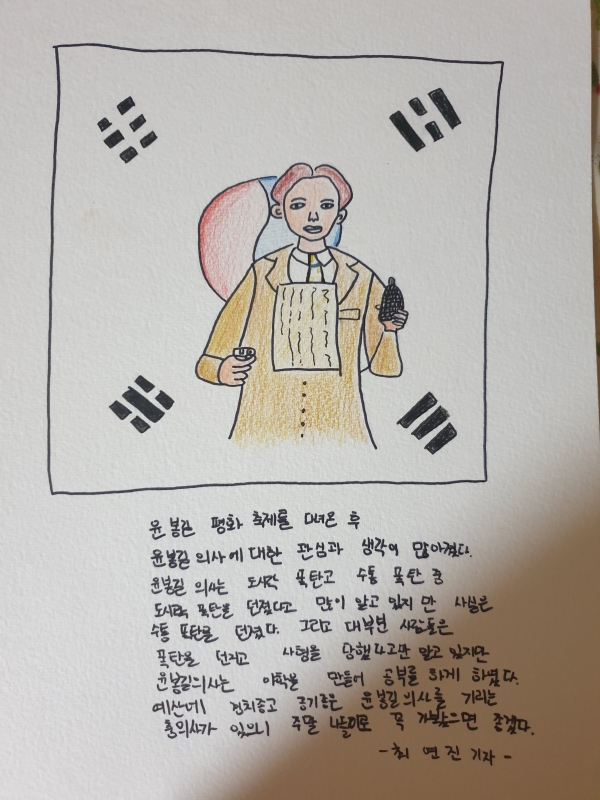 윤봉길 평화 축제를 다녀온 후
윤봉길 의사에 대한 관심과 생각이 많아졌다.
윤봉길 의사는 도시락 폭탄과 수통 폭탄 중
도시락 폭탄을 던졌다고 많이 알고 있지 만 사실은
수통 폭탄을 던졌다. 그리고 대부분 사람들은
폭탄을 던지고 사형을 당했다고만 알고 있지만
윤봉길의사는 야학을 만들어 공부를 하게 하였다.
예산에 경치좋고 공기좋은 윤봉길의사를 기리는
충의사가 있으니 주말 나들이로 꼭 가봤으면 좋겠다.
- 최 연 진 기자 -